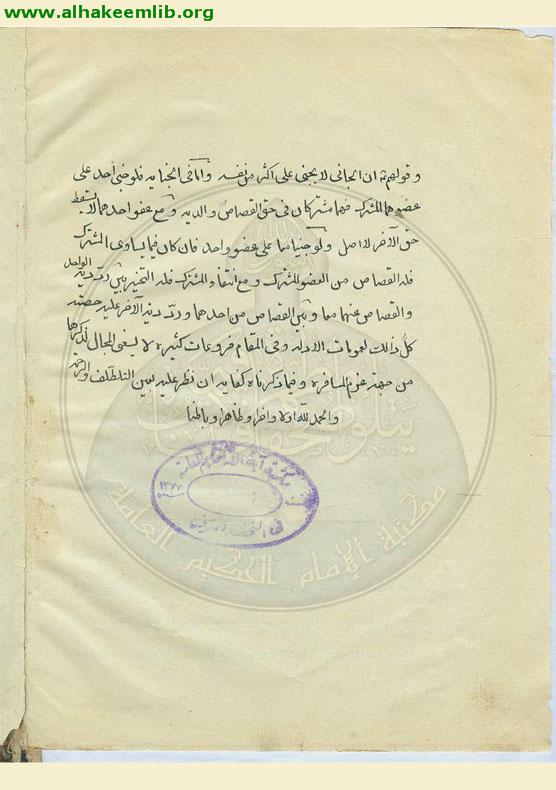 www.alhakeemlib.org
وقولهم ان الجاني لا يجني على اكثر من نفسه واما في الجنايه فلو جنى احد على
عضوهما المشترك فهما مشتركان في حق القصاص والديه ومع عفو احدهما لا يسقط
حق الآخر للاصل ولو جنيا معا على عضو واحد فان كان فيما يساوى المشترك
فله القصاص من العضو المشترك ومع انتفاء المشترك فله التخيير بين رد دية الواحد
والقصاص عنهما معا وبين القصاص من احدهما ورد دية الآخر عليه حصته
كل ذالك لعمومات الادلة وفي المقام فروعات كثيرة لا يسعنى المجال لذكرها
من جهة عزم المسافرة وفيما ذكرناه كفايه ان نظر عليه بعين التلطف والرحمة
والحمد لله اولا واخرا وظاهرا وباطنا
مكتبة آية الله الحكيم العامة
١٣٧٧
في النجف الاشرف
مكتبة الإمام الحكيم العامة